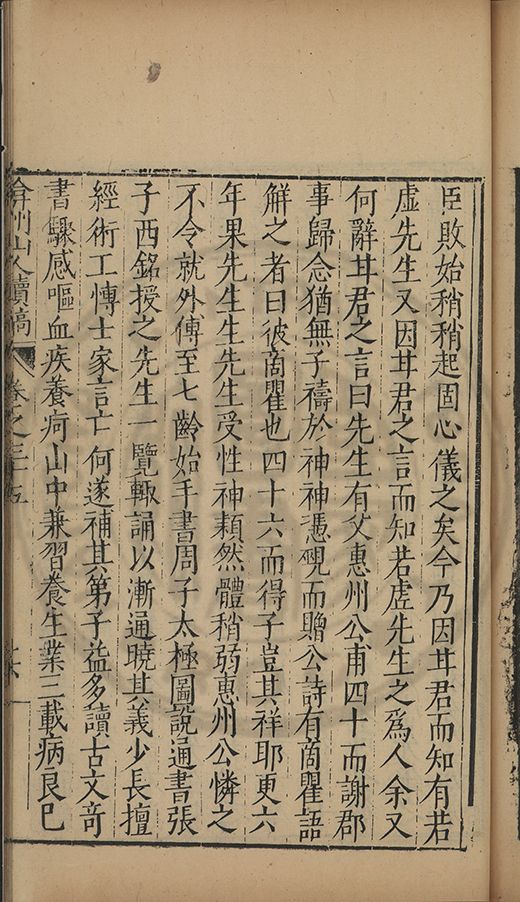 臣敗始稍稍起固心儀之矣今乃因茸君而知有若
虛先生又因茸君之言而知若虛先生之為人余又
何辭茸君之言曰先生有父惠州公甫四十而謝郡
事歸念猶無子禱於神神憑覡而贈公詩有商瞿語
解之者曰彼商瞿也四十六而得子豈其祥耶更六
年果先生生先生受性神穎然體稍弱惠州公憐之
不令就外傅至七齡始手書周子太極圖說通書張
子西銘授之先生一覽輒誦以漸通曉其義少長擅
經術工慱士家言亡何遂補其第子益多讀古文竒
書驟感嘔血疾養疴山中兼習養生業三載病良巳
弇州山人續稿 卷之三十五